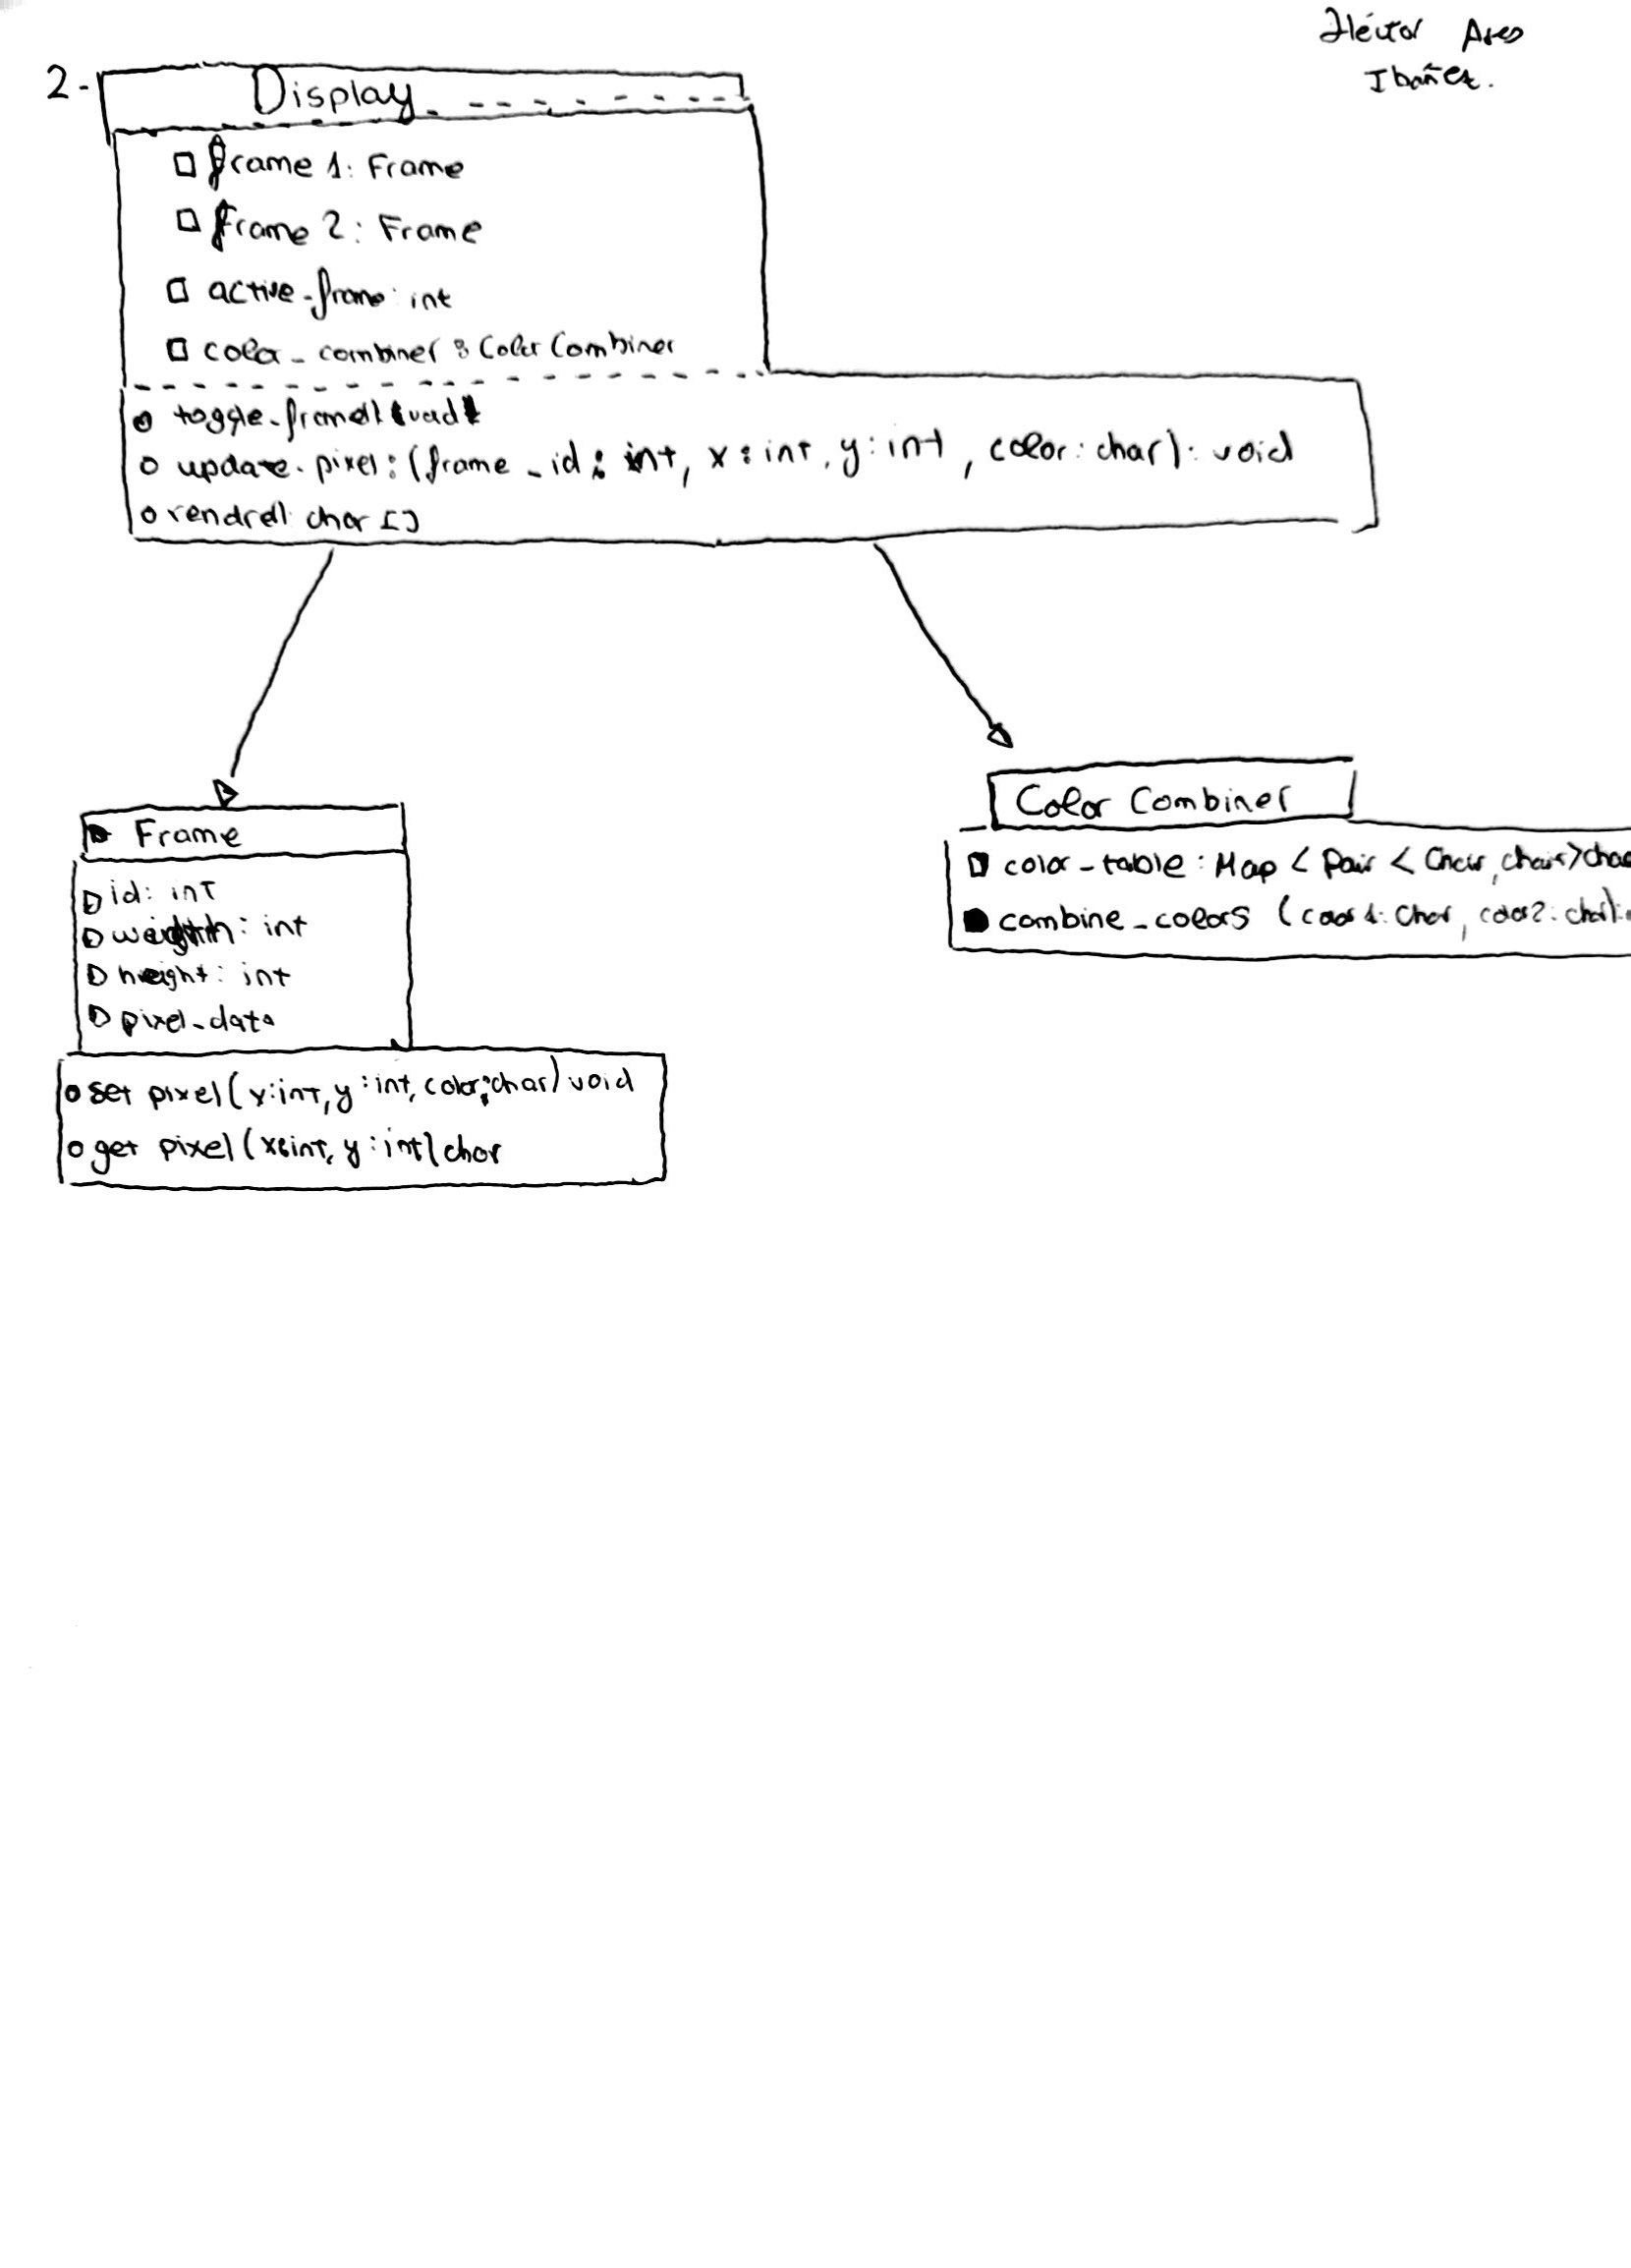 Héctor Ares
Ibañez.
2- Display
frame 1: Frame
frame 2: Frame
active_frame: int
color_combiner: Color Combiner
toggle_frame()
update_pixel: (frame_id: int, x: int, y: int, color: char): void
char []
Frame
id: int
: int
height: int
pixel_data
set pixel (x: int, y: int, color: char) void
get pixel (x: int, y: int) char
Color Combiner
color_table: Map < Pair < Char, char> char
combine_colors (color 1: Char, color 2: char):